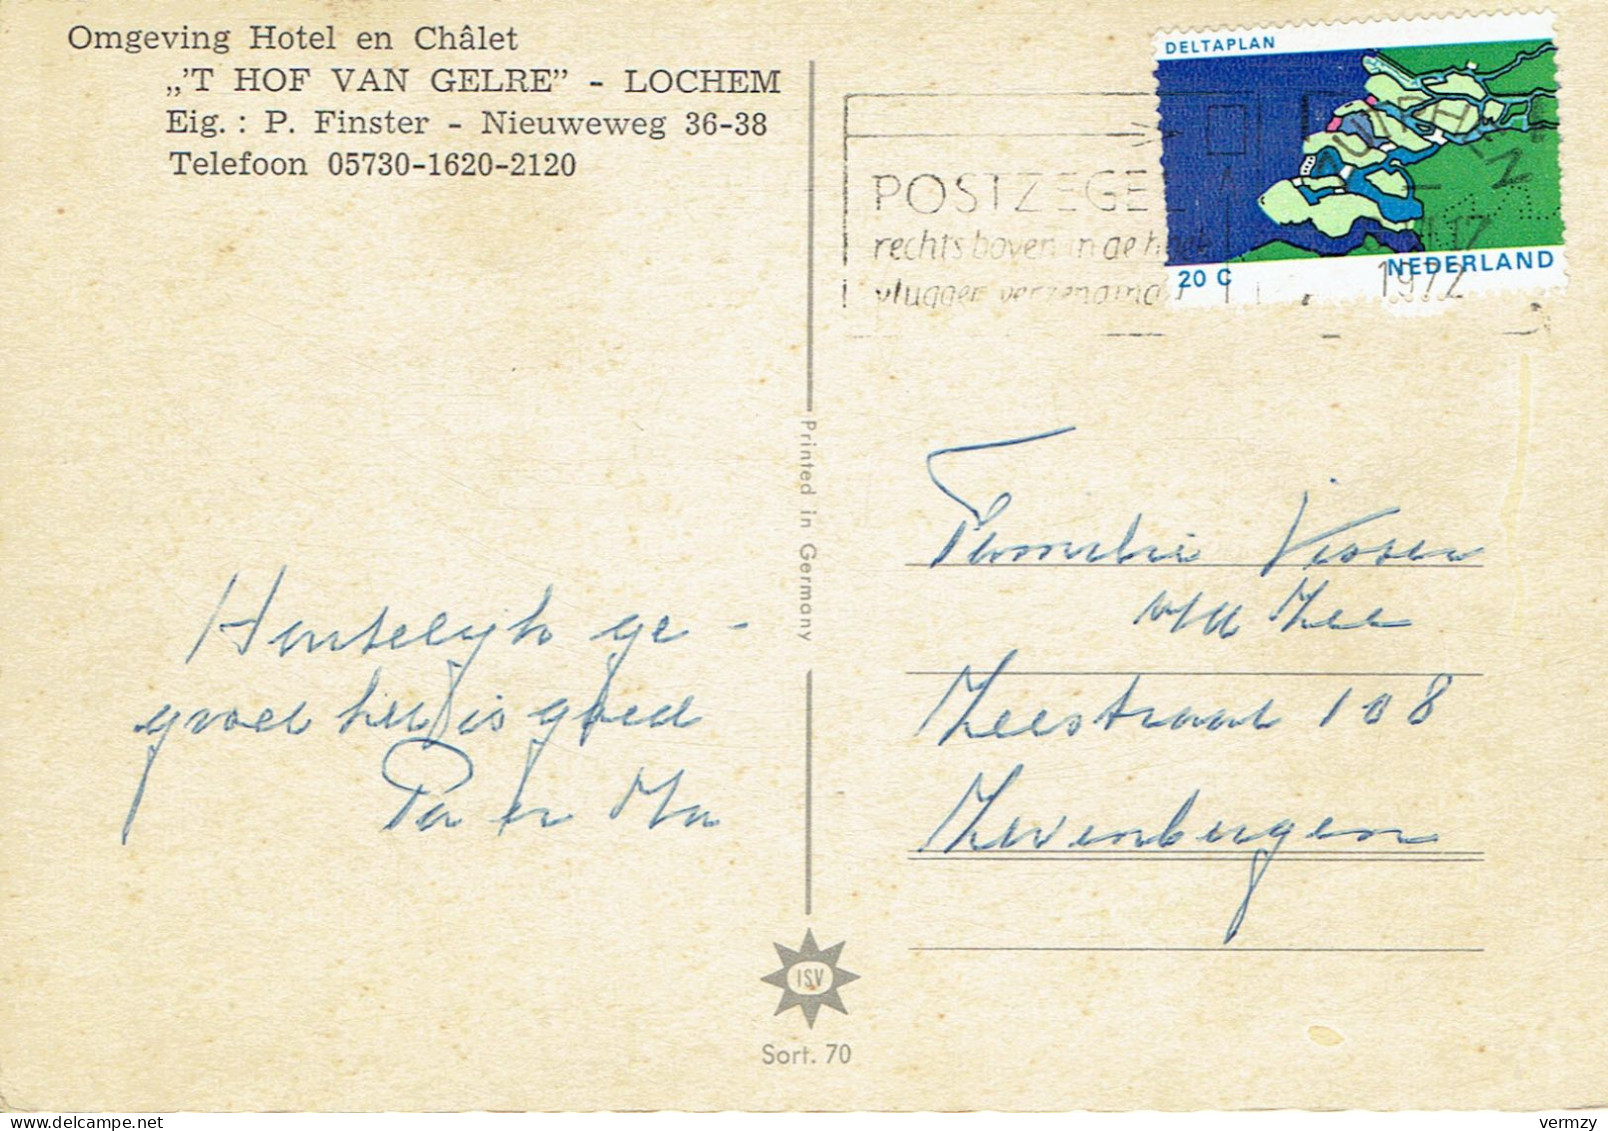 Omgeving Hotel en Châlet
„'T HOF VAN GELRE” - LOCHEM
Eig. : P. Finster - Nieuweweg 36-38
Telefoon 05730-1620-2120
DELTAPLAN
20 C
NEDERLAND
POSTZEGEL
rechts boven in de hoek
vlugger verzending
ZUTPHEN
1972
Printed in Germany
Hartelijk ge-
groet het is goed
Pa en Ma
Familie Visser
v/d Zee
Zeestraat 108
Zevenbergen
ISV
Sort. 70
vermzy